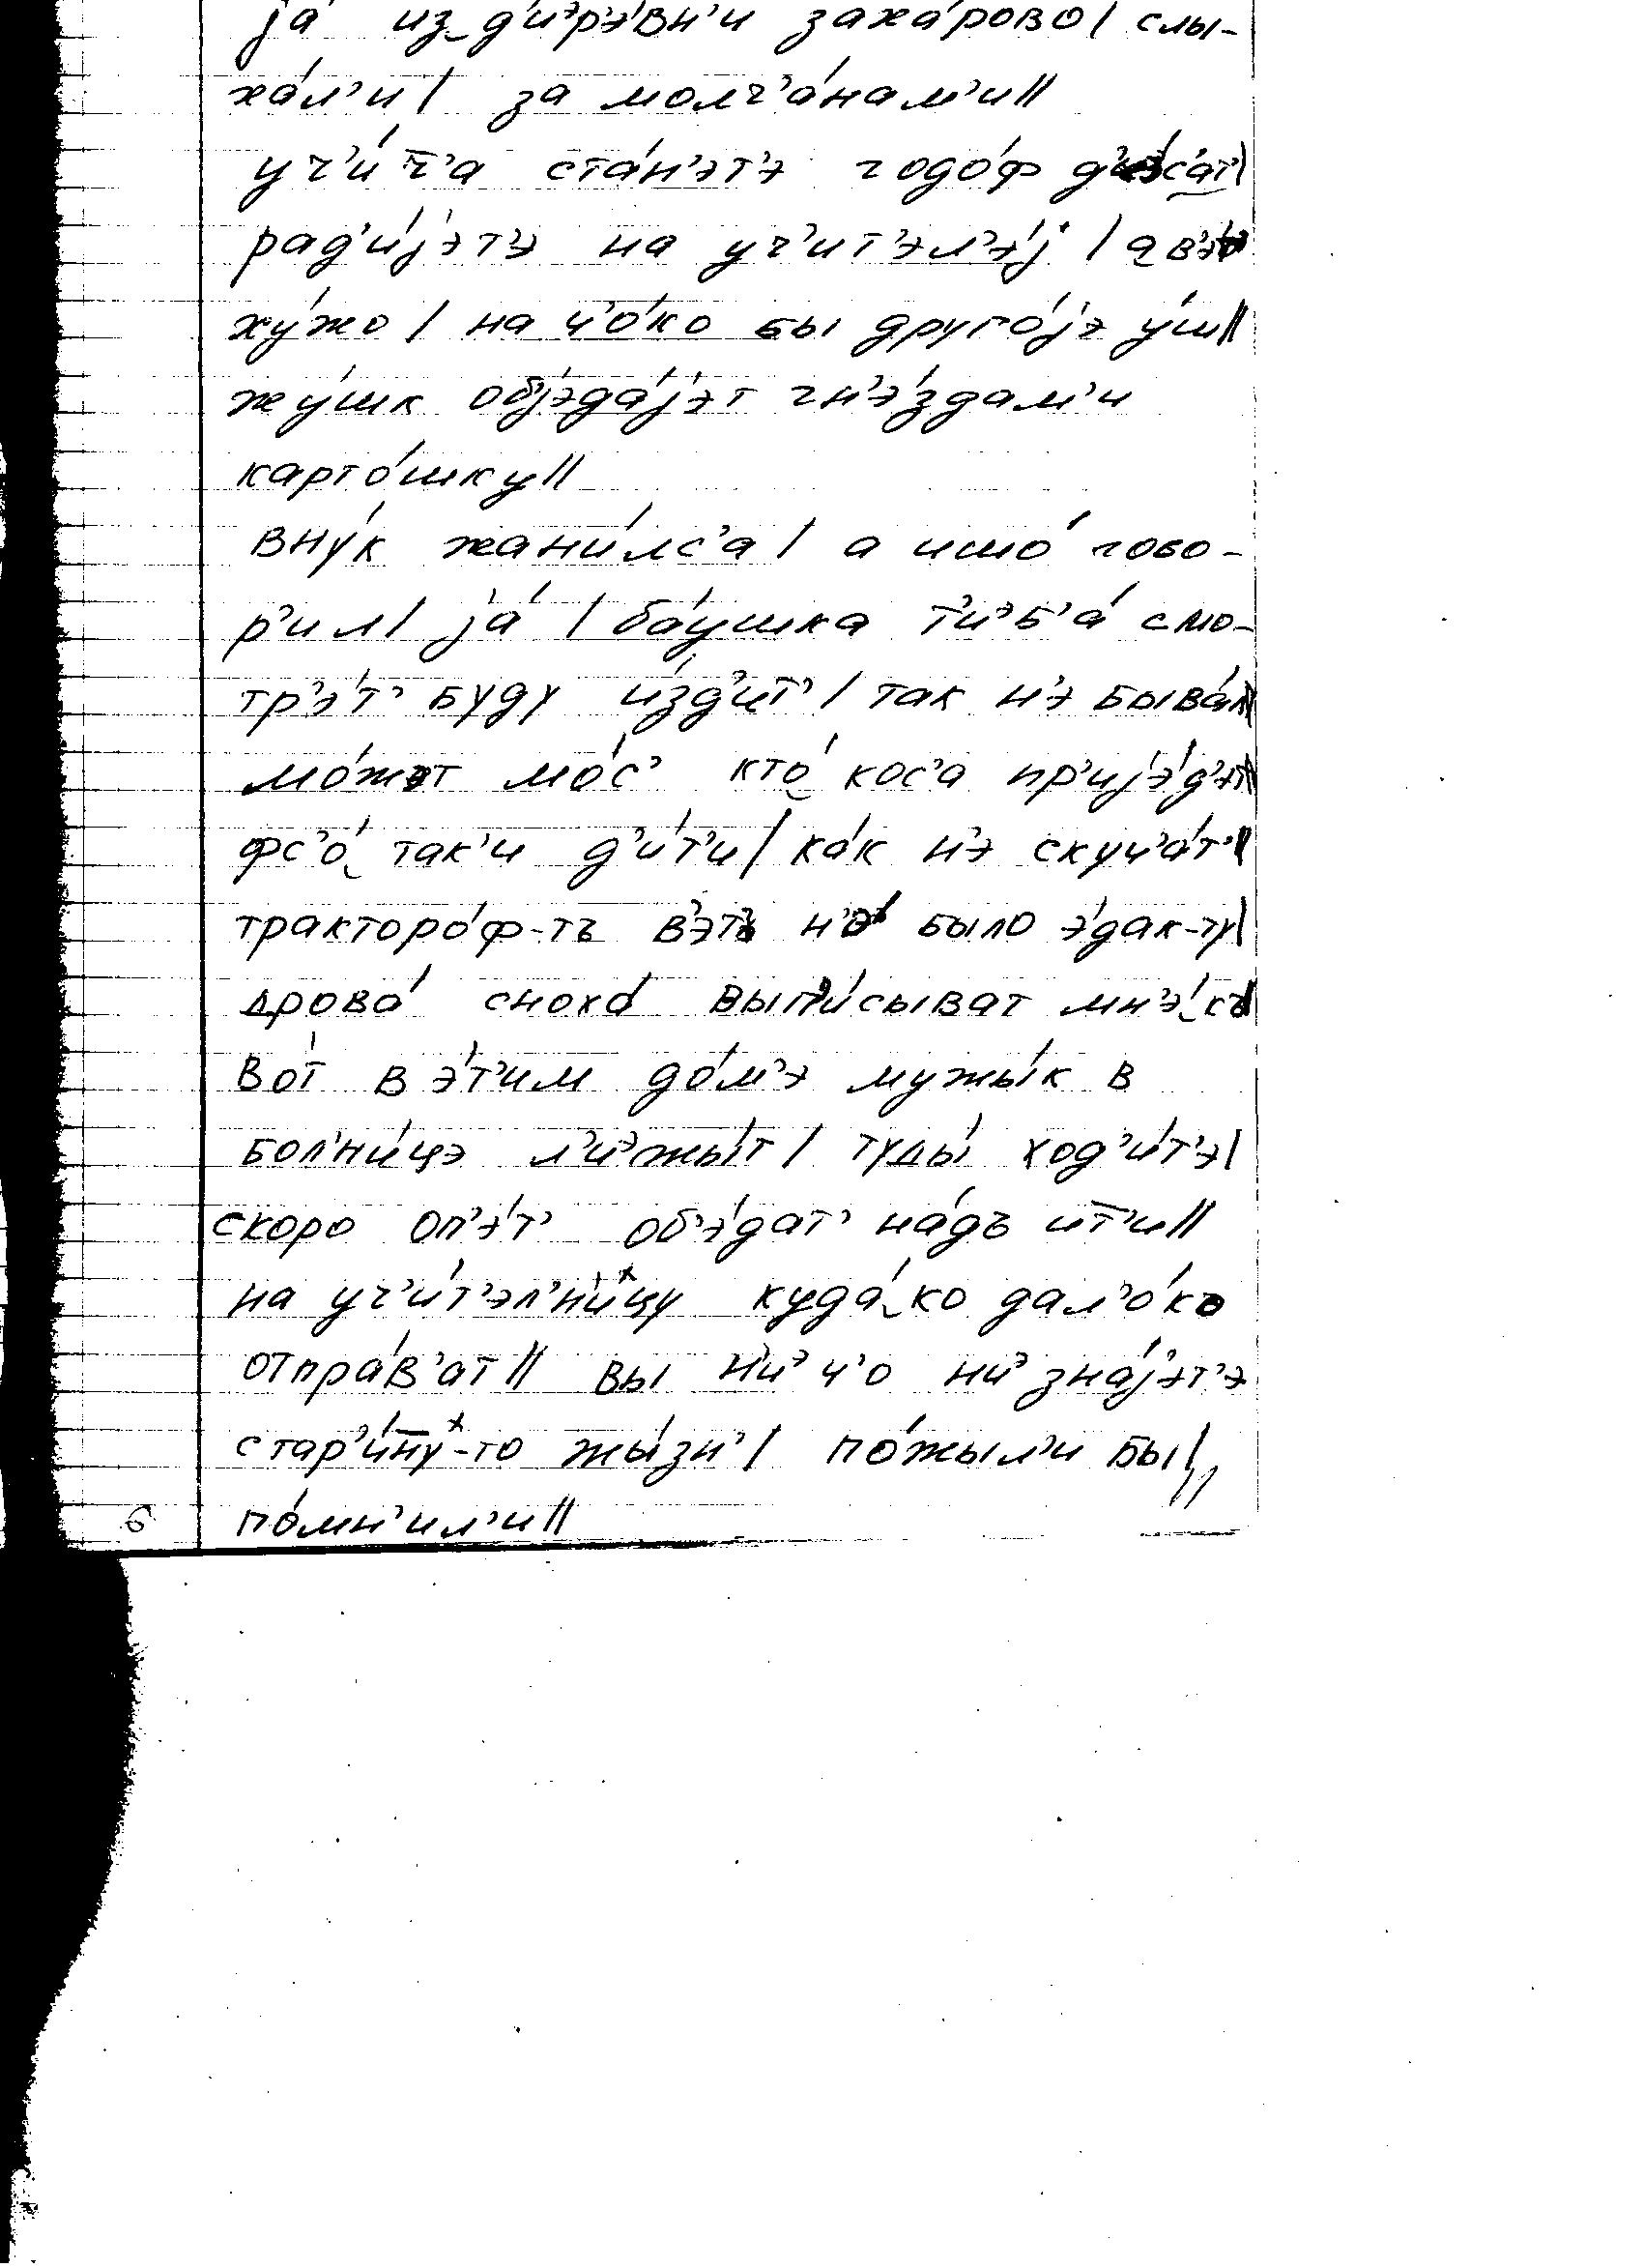 jа́ из_д'иэр'э́вн'и заха́рово| слы-
ха́л'и| за молч'а́нам'и||
уч'и́т̄'а ста́н'эт'э годо́ф д'э́с'ат'|
рад'и́jэт'э на уч'ит'эл'э́j | а в'эт
ху́жо | на ч'о́ко бы друго́jэ у́ш||
жу́шк обjэда́jэт гн'о́здам'и
карто́шку||
вну́к жани́лс'а | а ишо́ гово-
р'ил| jа́ | ба́ушка т'иэб'а́ смо-
тр'э́т' буду и́зд'ит' | так н'э быва́л||
мо́жэт мо́с' кто́_кос'а пр'иjэ́д'эт||
фс'о́_так'и д'и́т'и| ка́к н'э скуч'а́т'||
тракторо́ф-тъ в'эт' н'э́ было э́дак-ту|
дрова́ сноха́ выпи́сыват мн'э́_къ||
вот в э́т'им до́м'э мужы́к в
бол'ни́цэ л'иэжы́т | туды́ ход'и́т'э|
скоро оп'э́т' об'э́дат' на́дъ ит̄'и||
на уч'и́т'эл'ни́цу куда́_ко дал'о́ко
отпра́в'ат|| вы н'иэ ч'о ниэ зна́jэт'э
стар'и́н̄у-то жы́зн'| по́жыл'и бы||
6 по́мн'ил'и||